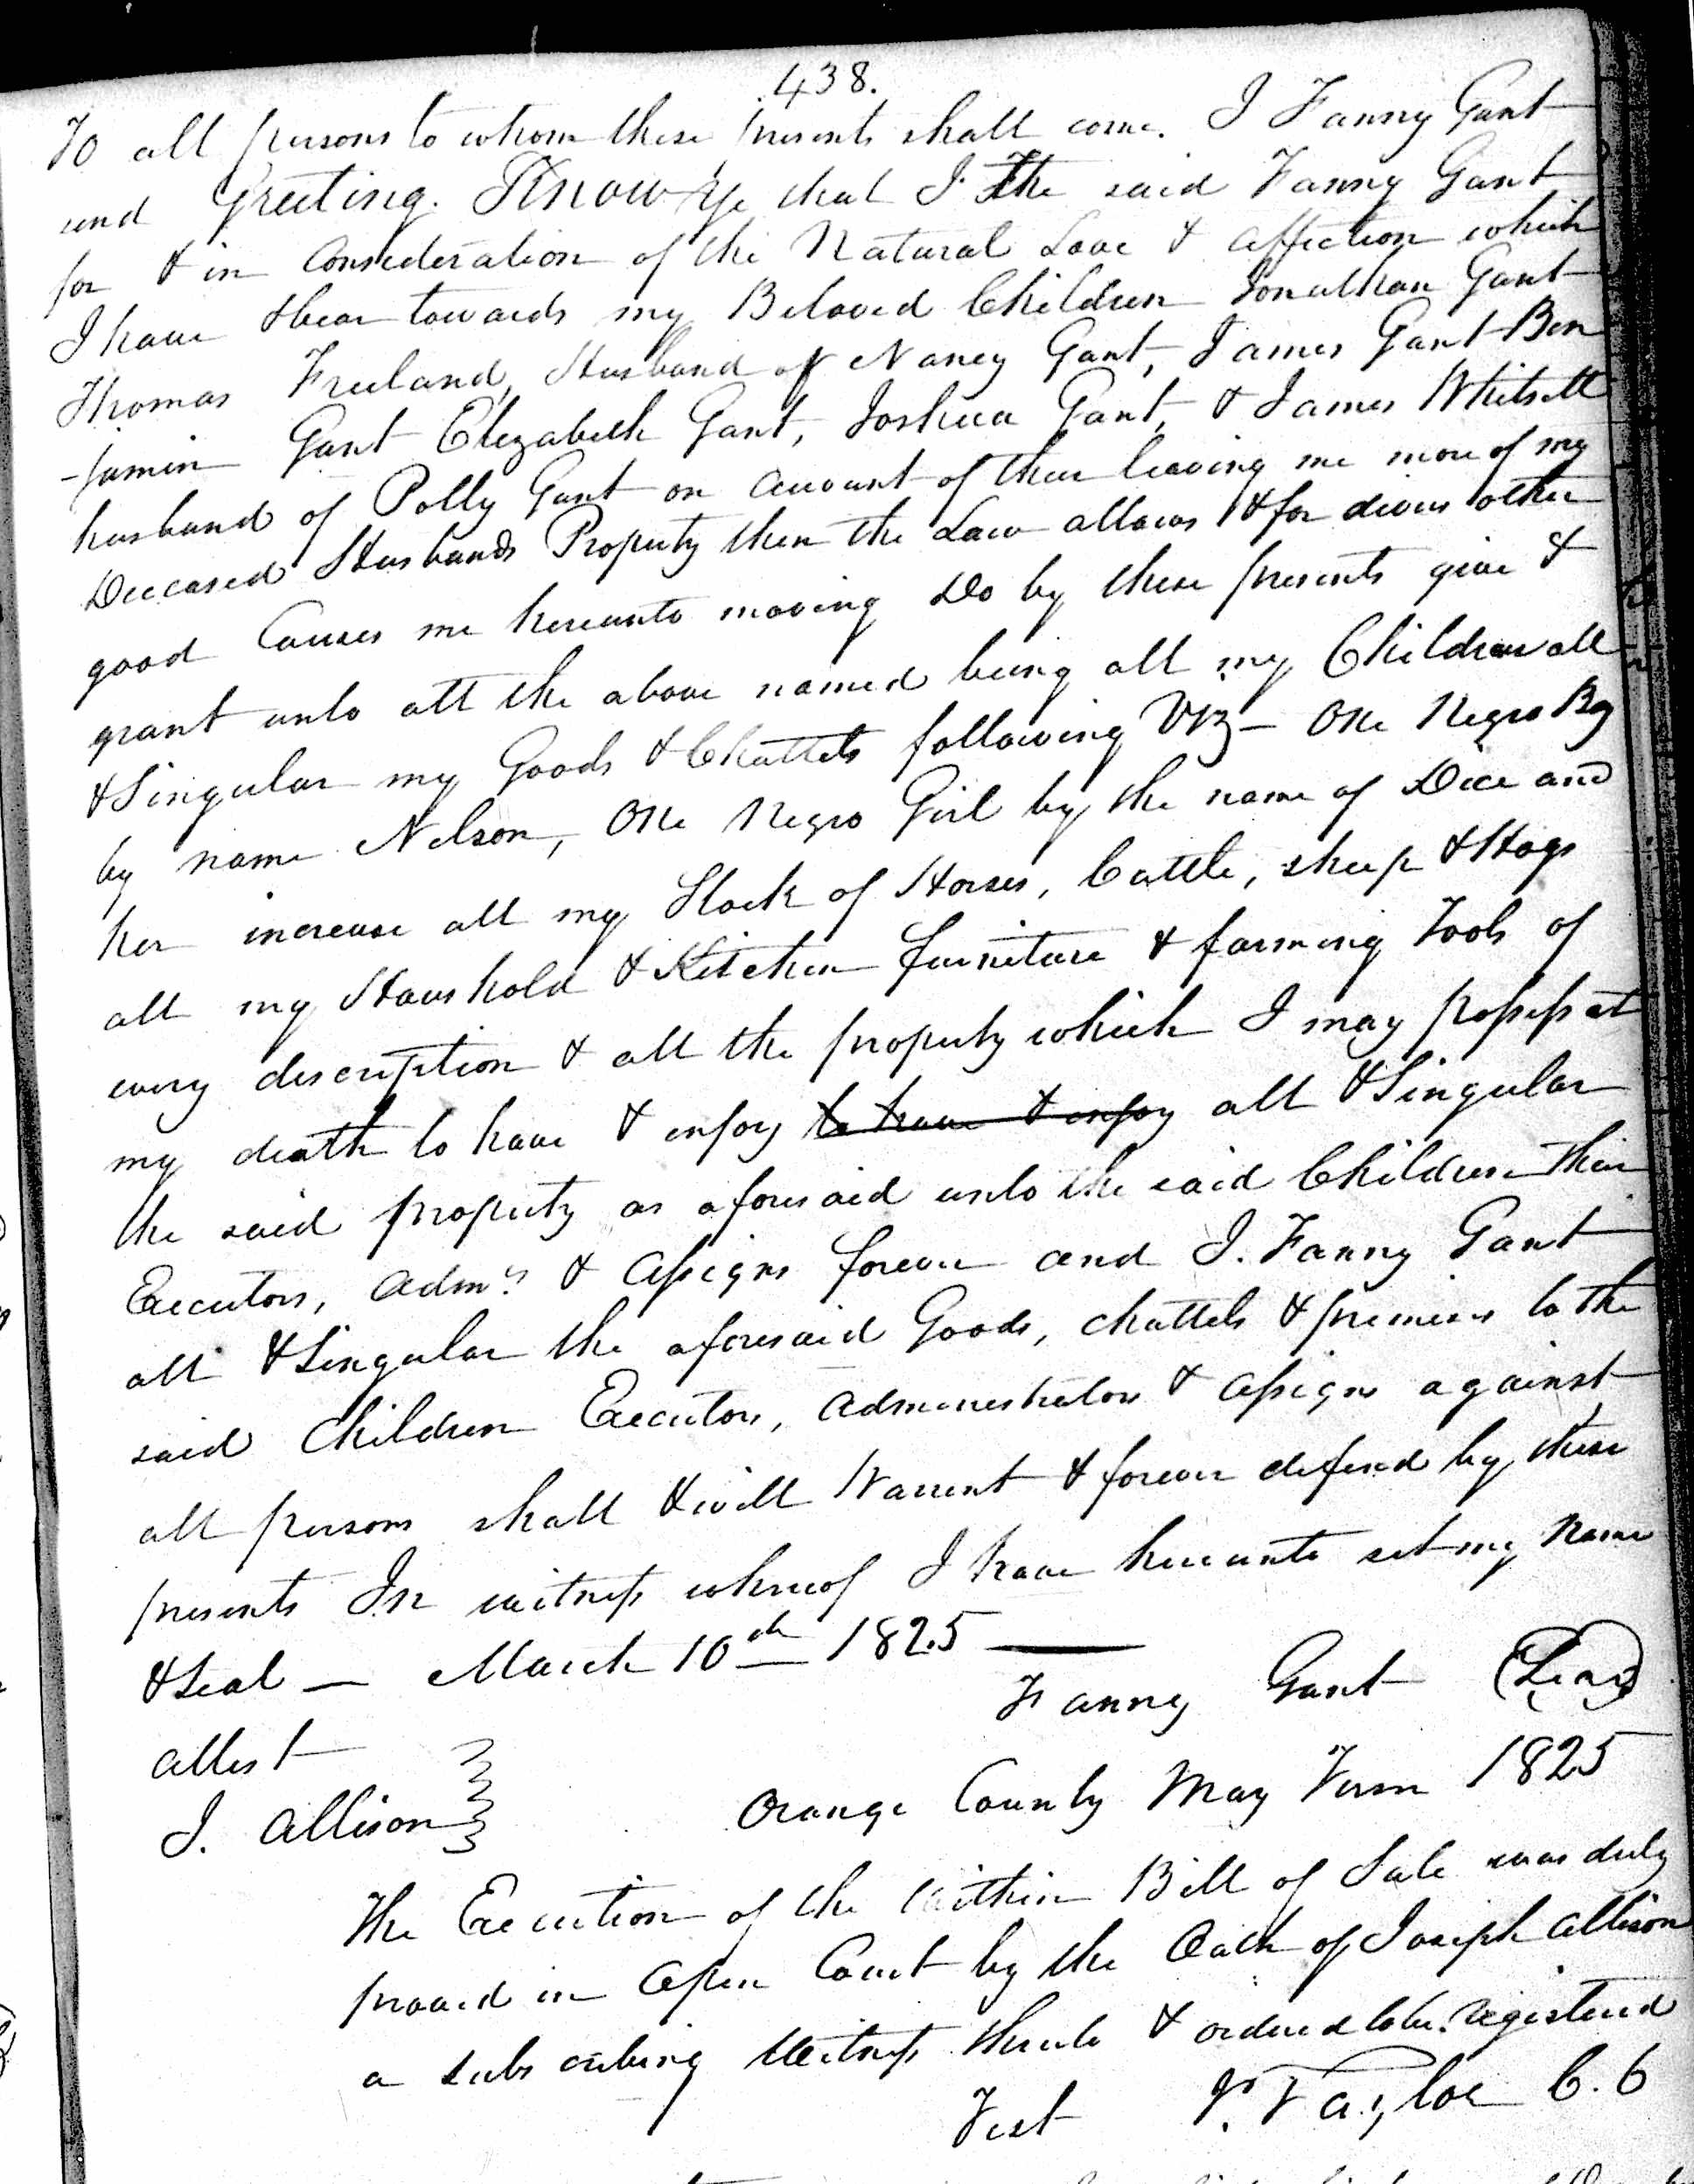 438.
To all persons to whom these presents shall come. I Fanny Gant
send Greeting. Know Ye that I the said Fanny Gant
for & in Consideration of the Natural Love & affection which
I have & bear towards my Beloved Children Jonathan Gant
Thomas Freeland, Husband of Nancy Gant, James Gant Ben
-jamin Gant Elizabeth Gant, Joshua Gant, & James Whitsett
husband of Polly Gant on account of their leaving me more of my
Deceased Husbands Property then the Law allows & for divers other
good Causes me hereunto moving Do by these presents give &
grant unto all the above named being all my Children all
& Singular my Goods & Chattels following Viz - One Negro Boy
by name Nelson, One Negro Girl by the name of Dice and
her increase all my Stock of Horses, Cattle, sheep & Hogs
all my Houshold & Kitchen furniture & farming Tools of
every description & all the property which I may possess at
my death to have & enjoy to have & enjoy all & Singular
the said property as aforesaid unto the said Children their
Executors, Admrs & Assigns forever and I. Fanny Gant
all & Singular the aforesaid Goods, chattels & premises to the
said Children Executors, administrators & assigns against
all persons shall & will Warrent & forever defend by these
presents In witness whereof I have hereunto set my Name
& Seal - March 10th 1825
Fanny Gant (Seal)
Attest
J. Allison
Orange County May Term 1825
The Execution of the within Bill of Sale was duly
proved in Open Court by the Oath of Joseph Allison
a subscribing Witness thereto & ordered to be registered
Test J. Taylor C. C